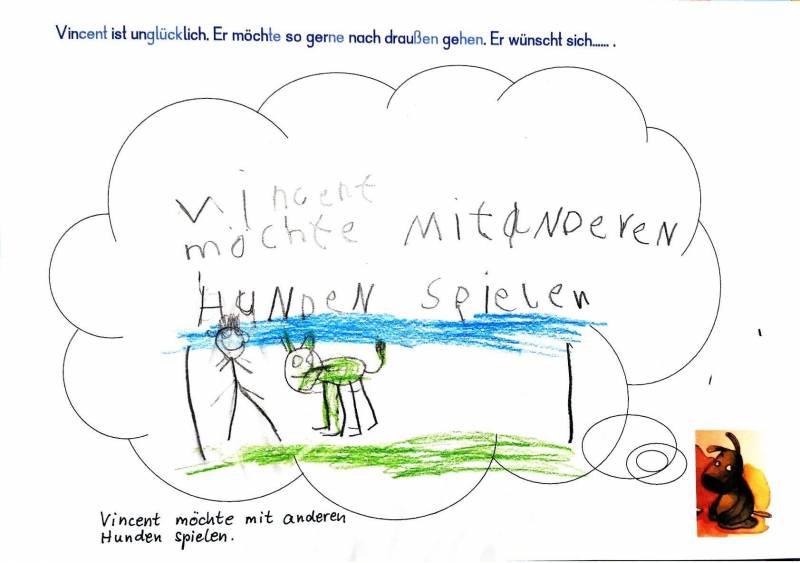 Vincent ist unglücklich. Er möchte so gerne nach draußen gehen. Er wünscht sich...... .
Vincent
möchte mit anderen
Hunden spielen
Vincent möchte mit anderen
Hunden spielen.